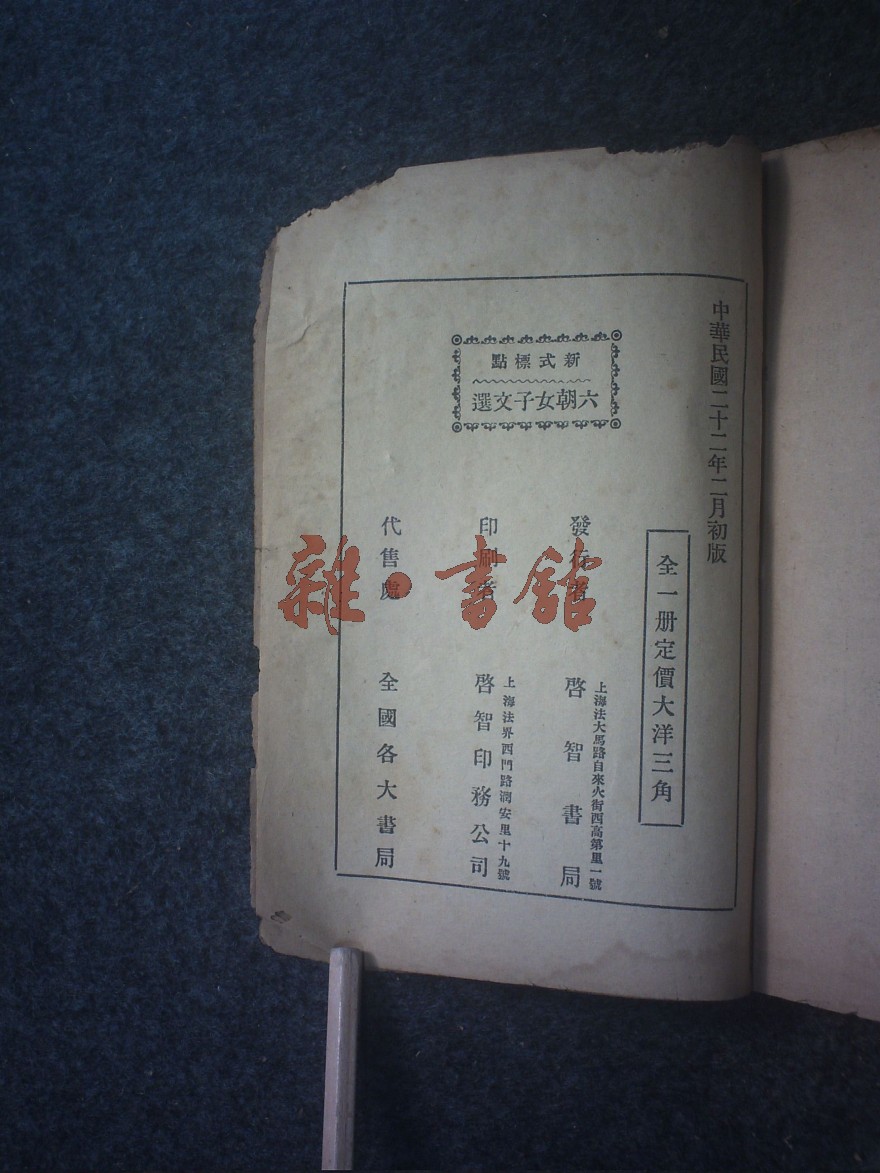 中華民國二十二年二月初版
全一册定價大洋三角
新式標點
六朝女子文選
發行者
上海法大馬路自來火街西高第里一號
啓智書局
印刷者
上海法界西門路潤安里十九號
啓智印務公司
代售處
全國各大書局
雜·書館